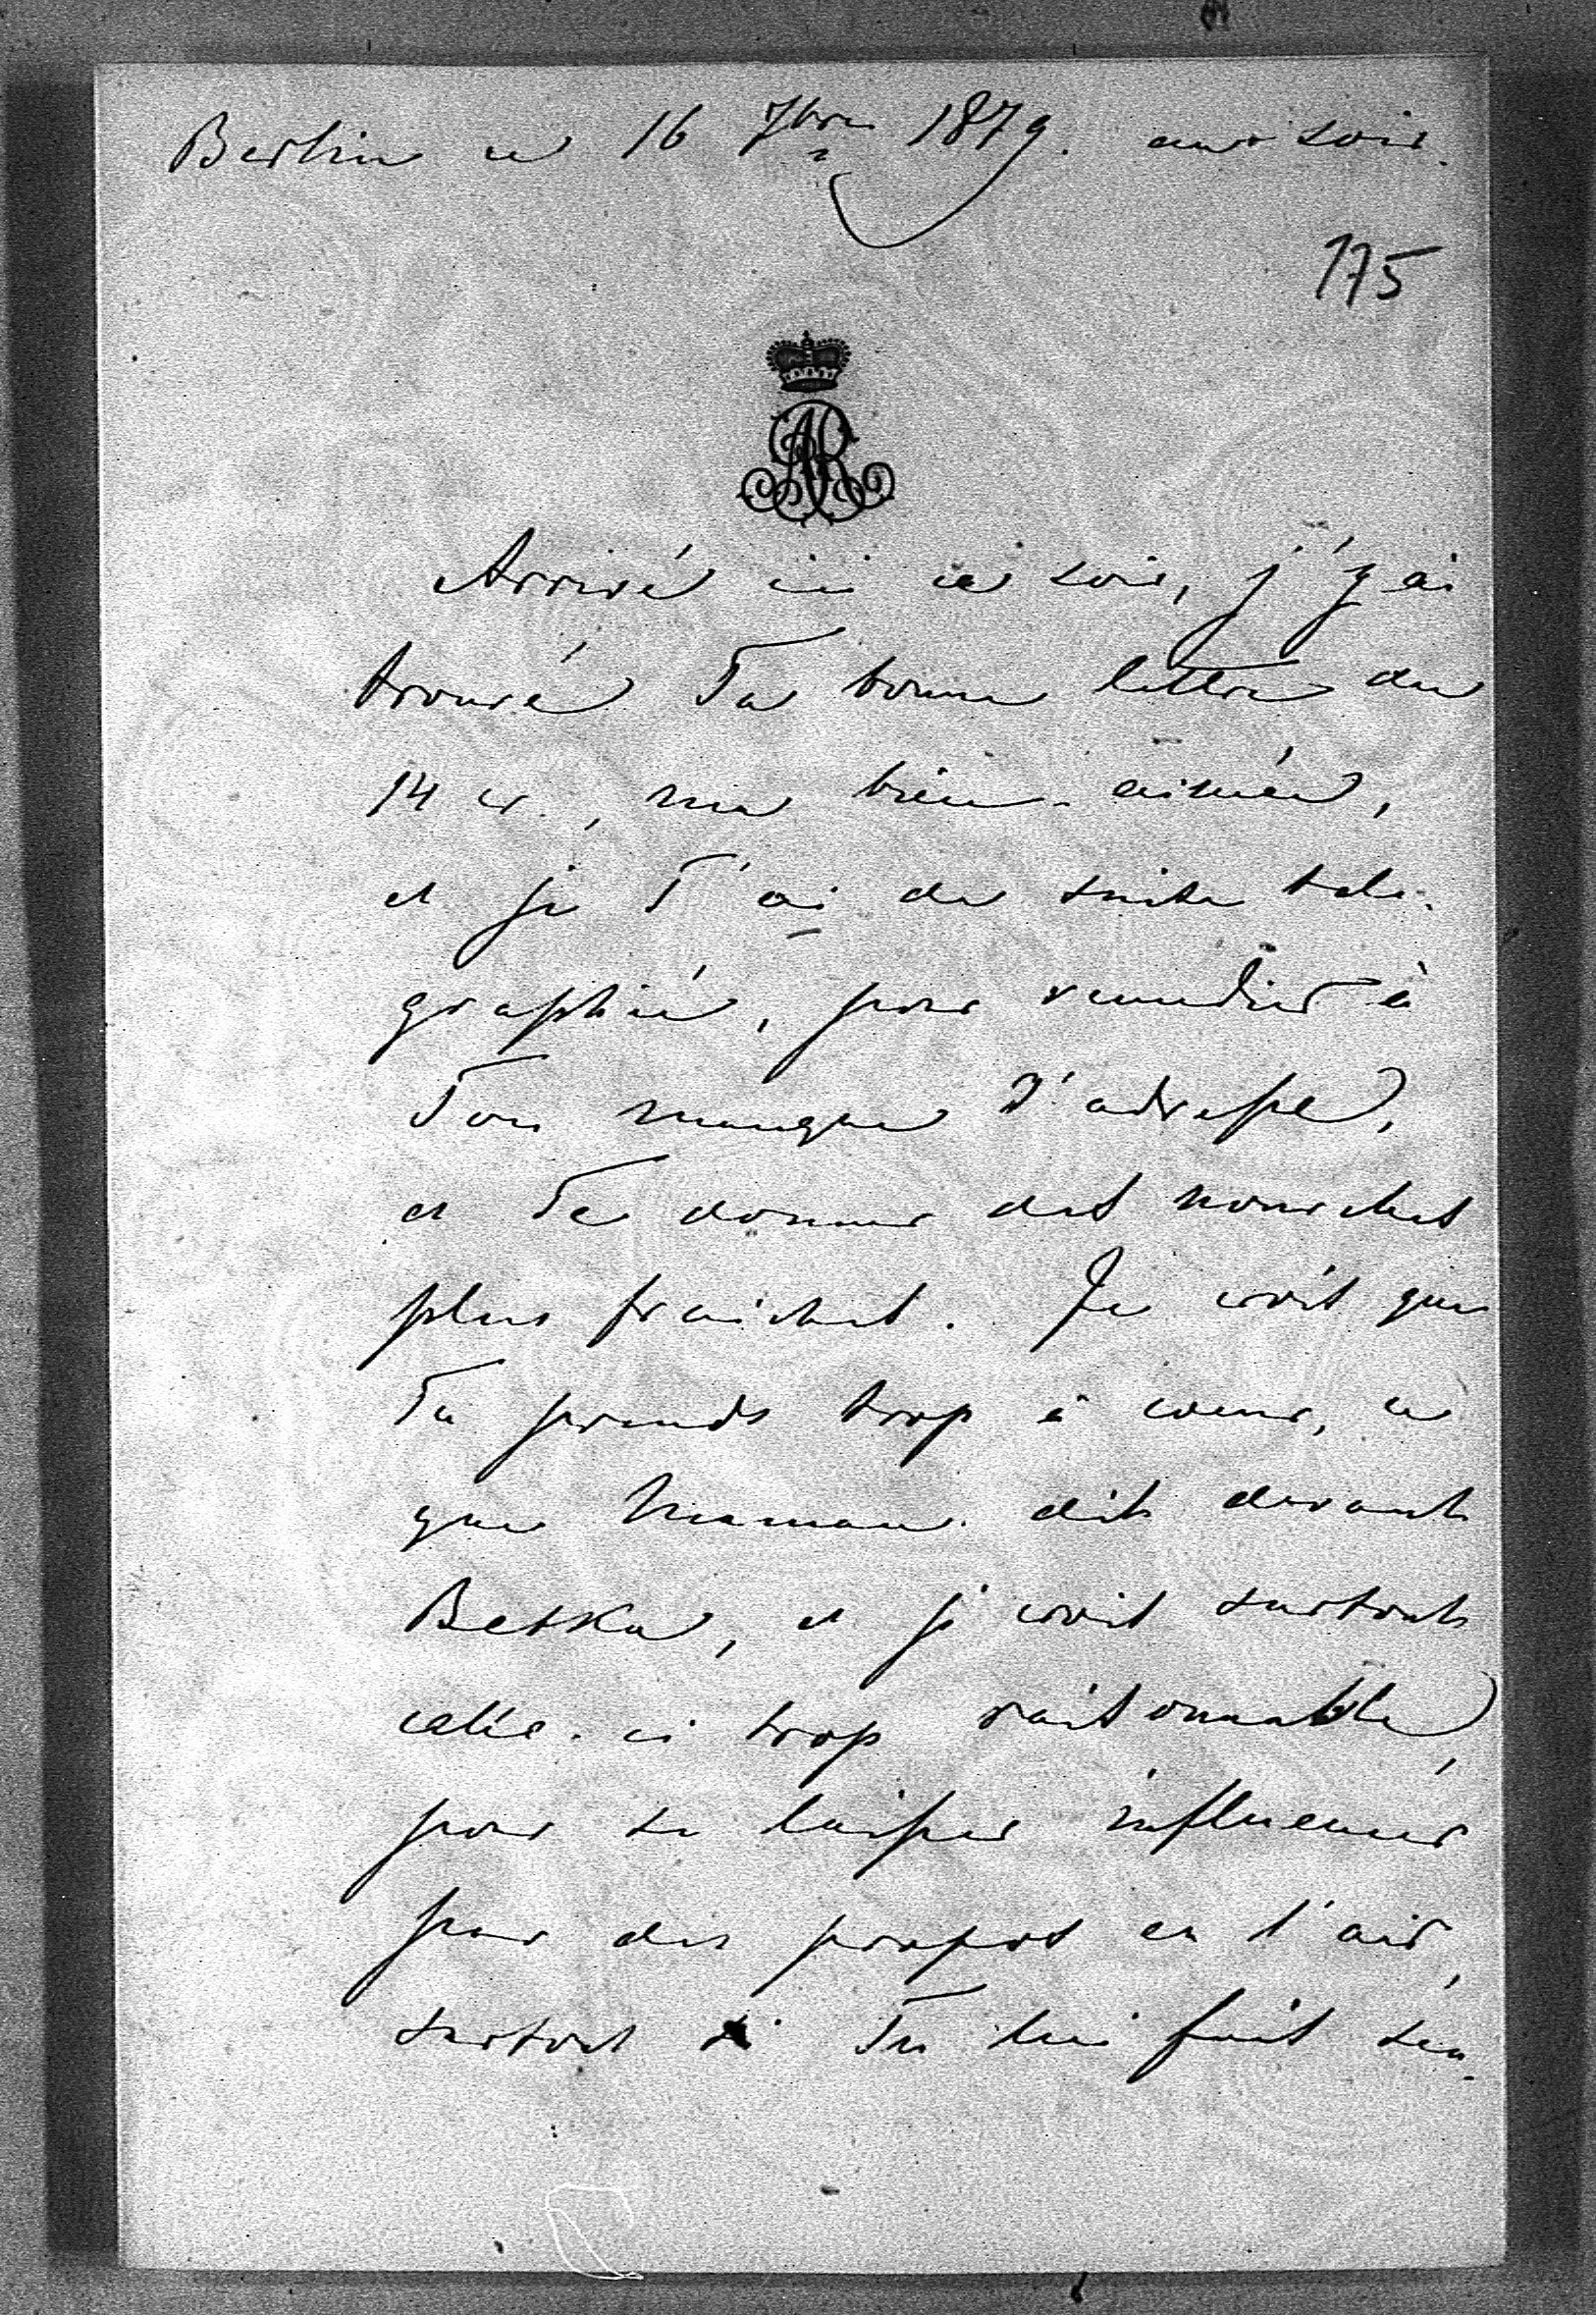 Berlin ce 16 7bre 1879. au soir.
175
AR
Arrivé ici ce soir, j'y ai
trouvé Ta bonne lettre du
14 cr., ma bien-aimée,
et je T'ai de suite télé-
graphié, pour remedier à
Ton manque d'adresse,
et Te donner des nouvelles
plus fraiches. Je crois que
Tu prends trop à coeur, ce
que Maman dit devant
Betka, et je crois surtout
celle-ci trop raisonnable,
pour se laisser influencer
par des propos en l'air,
surtout si Tu lui fais sen-